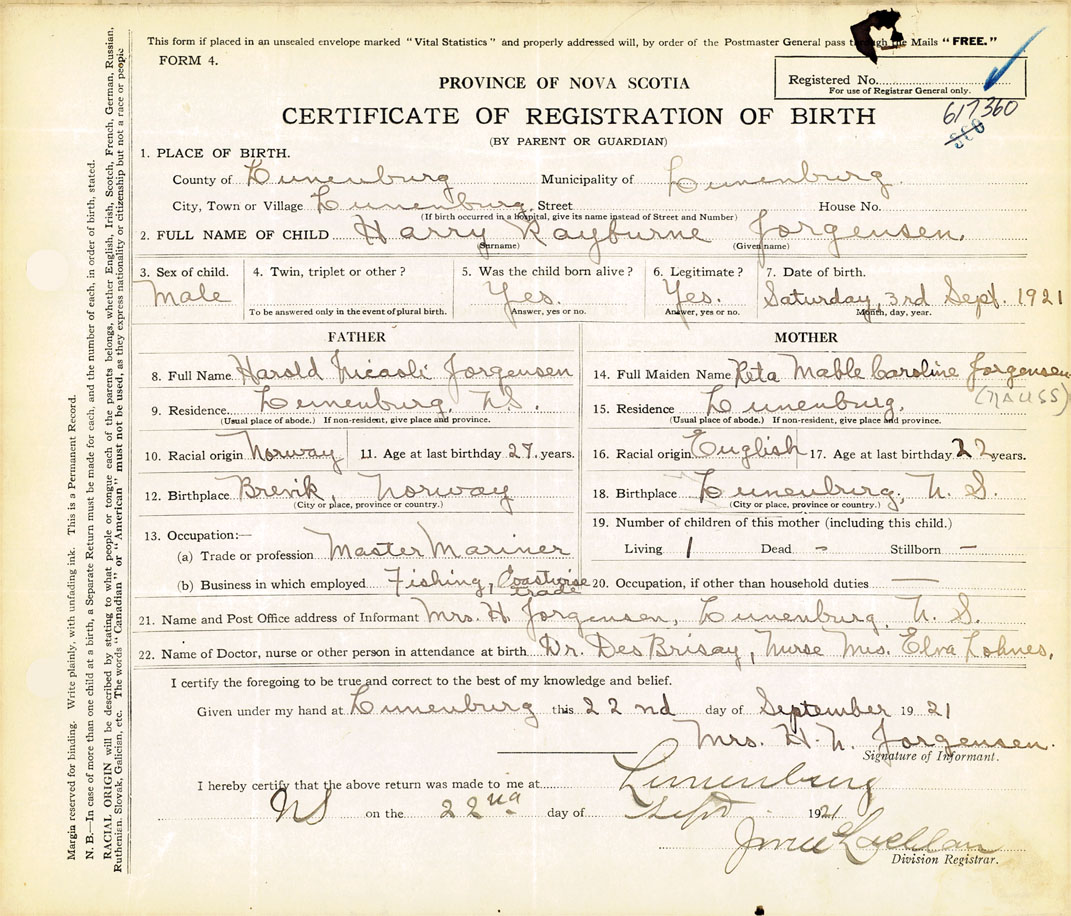 This form if placed in an unsealed envelope marked "Vital Statistics" and properly addressed will, by order of the Postmaster General pass through the Mails "FREE."
FORM 4.
Registered No.
For use of Registrar General only.
PROVINCE OF NOVA SCOTIA
617360
CERTIFICATE OF REGISTRATION OF BIRTH
(BY PARENT OR GUARDIAN)
1. PLACE OF BIRTH.
County of Lunenburg Municipality of Lunenburg
City, Town or Village Lunenburg. Street House No.
(If birth occurred in a hospital, give its name instead of Street and Number)
2. FULL NAME OF CHILD Harry Rayburne Jorgensen.
(Surname) (Given name)
3. Sex of child. 4. Twin, triplet or other? 5. Was the child born alive? 6. Legitimate? 7. Date of birth.
Male Yes. Yes. Saturday, 3rd Sept. 1921
To be answered only in the event of plural birth. Answer, yes or no. Answer, yes or no. Month, day, year.
FATHER
8. Full Name Harold Nicaoli Jorgensen
9. Residence. Lunenburg, N.S.
(Usual place of abode.) If non-resident, give place and province.
10. Racial origin Norway 11. Age at last birthday 27. years.
12. Birthplace Brevik, Norway
(City or place, province or country.)
13. Occupation:—
(a) Trade or profession Master Mariner
(b) Business in which employed Fishing, Coastwise
trade
MOTHER
14. Full Maiden Name Reta Mable Caroline Jorgensen
(NAUSS)
15. Residence Lunenburg.
(Usual place of abode.) If non-resident, give place and province.
16. Racial origin English 17. Age at last birthday 22 years.
18. Birthplace Lunenburg, N. S.
(City or place, province or country.)
19. Number of children of this mother (including this child.)
Living 1 Dead - Stillborn -
20. Occupation, if other than household duties —
21. Name and Post Office address of Informant Mrs. H Jorgensen, Lunenburg, N. S.
22. Name of Doctor, nurse or other person in attendance at birth Dr. DesBrisay, Nurse Mrs. Elva Lohnes,
I certify the foregoing to be true and correct to the best of my knowledge and belief.
Given under my hand at Lunenburg this 22nd day of September 1921
Mrs. H. N. Jorgensen.
Signature of Informant.
I hereby certify that the above return was made to me at Lunenburg
NS on the 22nd day of Sept 1921
Division Registrar.
Margia reserved for binding. Write plainly, with unfading ink. This is a Permanent Record.
N. B.—In case of more than one child at a birth, a Separate Return must be made for each, and the number of each, in order of birth, stated.
RACIAL ORIGIN will be described by stating to what people or tongue each of the parents belongs, whether English, Irish, Scotch, French, German, Russian,
Ruthenian, Slovak, Galician, etc. The words "Canadian" or "American" must not be used, as they express nationality or citizenship but not a race or people